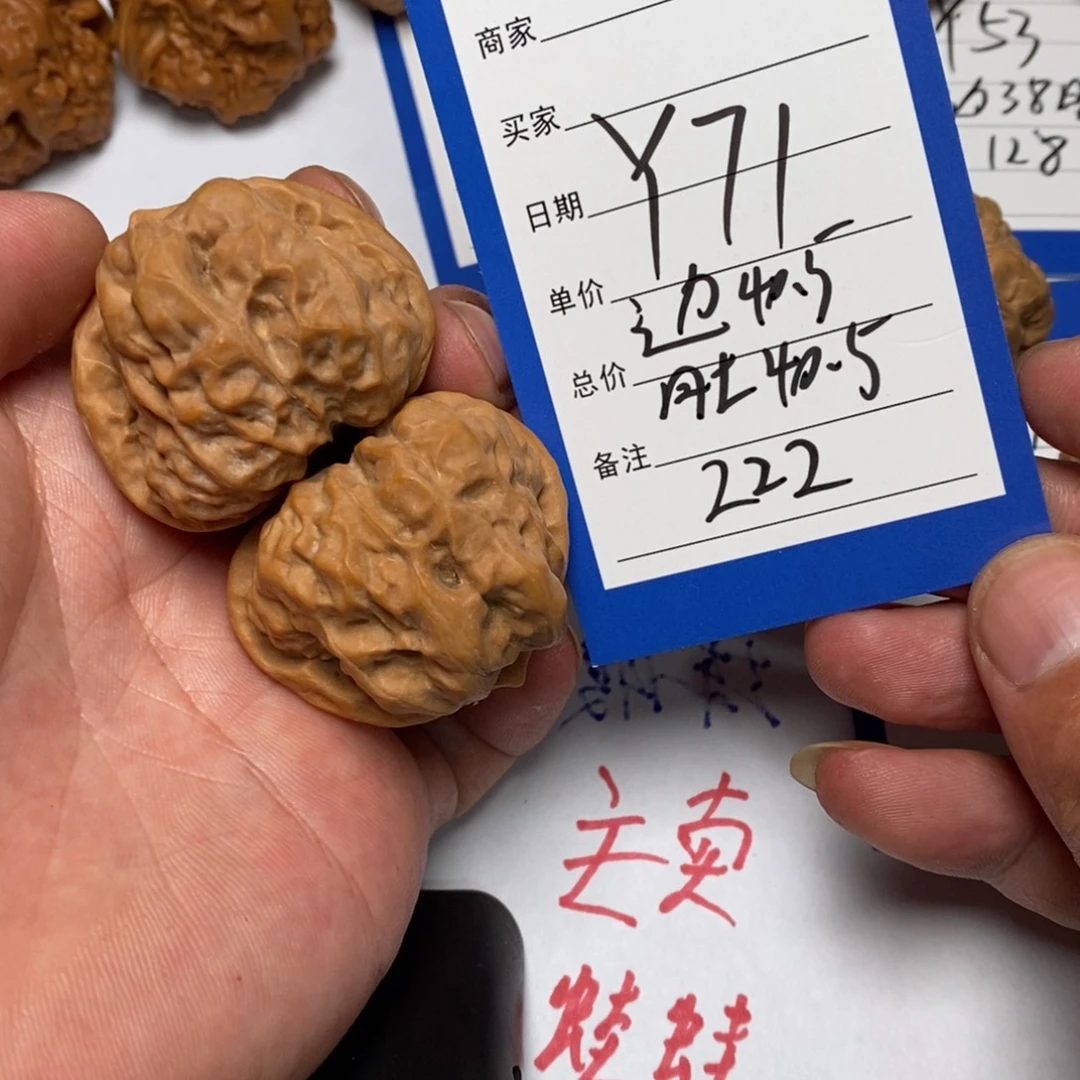 商家
买家
Y71
日期
单价
边40.5
总价
肚40.5
备注
222
Y53
边38肚
128
主卖